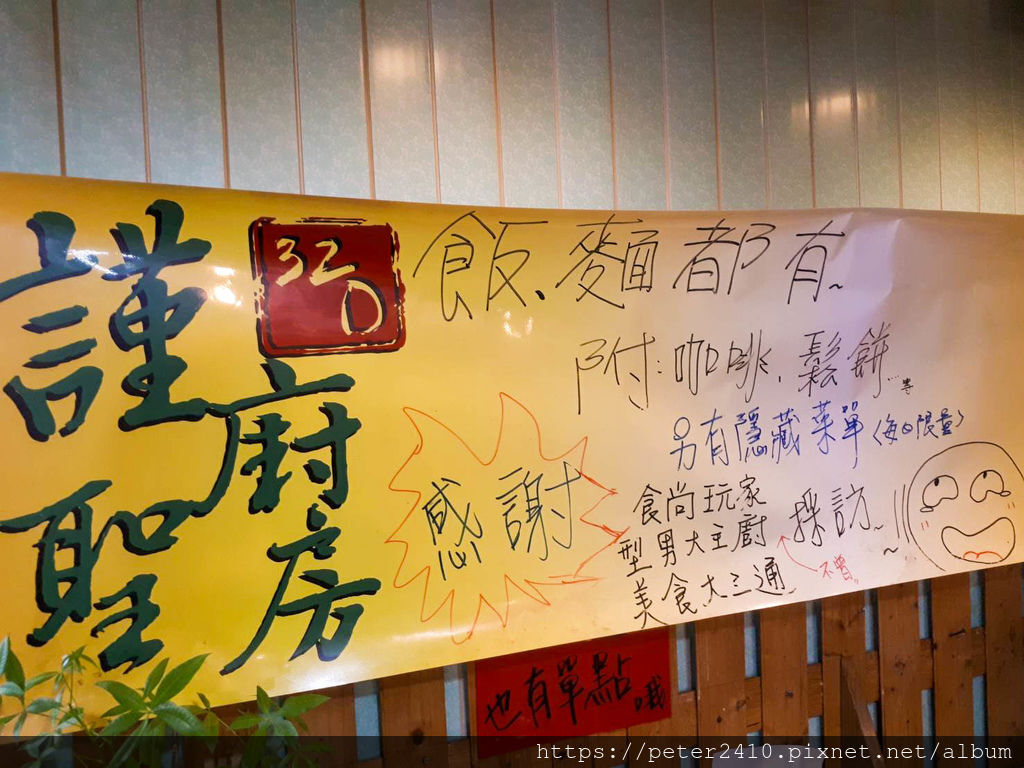 謹聖
廚房
323
飯、麵都有~
附:咖啡、鬆餅...等
另有隱藏菜單〈每日限量〉
感謝
食尚玩家
型男大主廚
美食大三通
採訪~
不曾
也有單點哦
https://peter2410.pixnet.net/album